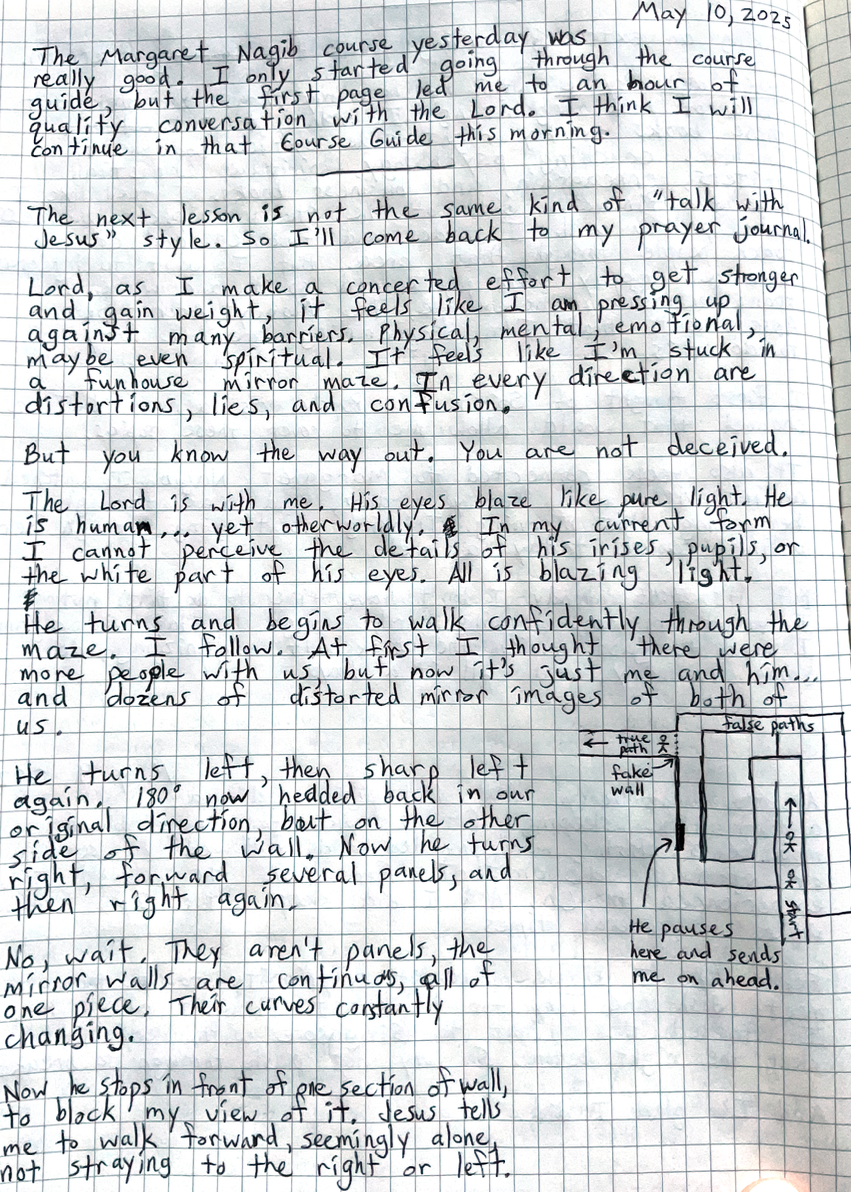 May 10, 2025
The Margaret Nagib course yesterday was
really good. I only started going through the course
guide, but the first page led me to an hour of
quality conversation with the Lord. I think I will
continue in that Course Guide this morning.
The next lesson is not the same kind of "talk with
Jesus" style. So I'll come back to my prayer journal.
Lord, as I make a concerted effort to get stronger
and gain weight, it feels like I am pressing up
against many barriers. Physical, mental, emotional,
maybe even spiritual. It feels like I'm stuck in
a funhouse mirror maze. In every direction are
distortions, lies, and confusion.
But you know the way out. You are not deceived.
The Lord is with me. His eyes blaze like pure light. He
is human... yet otherworldly. In my current form
I cannot perceive the details of his irises, pupils, or
the white part of his eyes. All is blazing light.
He turns and begins to walk confidently through the
maze. I follow. At first I thought there were
more people with us, but now it's just me and him...
and dozens of distorted mirror images of both of
us.
He turns left, then sharp left
again. 180° now headed back in our
original direction, but on the other
side of the wall. Now he turns
right, forward several panels, and
then right again.
No, wait. They aren't panels, the
mirror walls are continuos, all of
one piece. Their curves constantly
changing.
Now he stops in front of one section of wall,
to block my view of it. Jesus tells
me to walk forward, seemingly alone,
not straying to the right or left.
false paths
true
path
fake
wall
start
He pauses
here and sends
me on ahead.